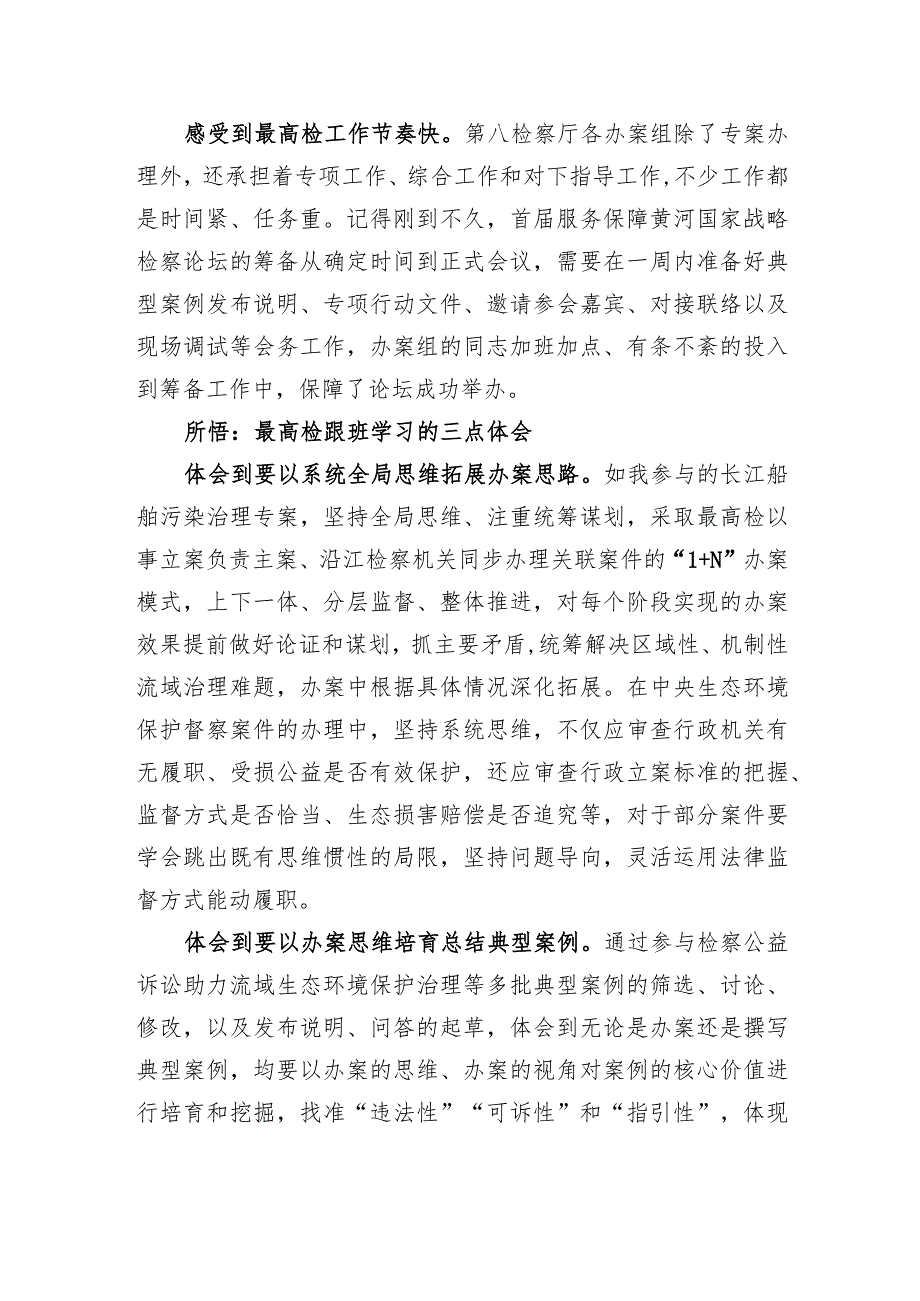 感受到最高检工作节奏快。第八检察厅各办案组除了专案办
理外，还承担着专项工作、综合工作和对下指导工作,不少工作都
是时间紧、任务重。记得刚到不久，首届服务保障黄河国家战略
检察论坛的筹备从确定时间到正式会议，需要在一周内准备好典
型案例发布说明、专项行动文件、邀请参会嘉宾、对接联络以及
现场调试等会务工作，办案组的同志加班加点、有条不紊的投入
到筹备工作中，保障了论坛成功举办。
所悟：最高检跟班学习的三点体会
体会到要以系统全局思维拓展办案思路。如我参与的长江船
舶污染治理专案，坚持全局思维、注重统筹谋划，采取最高检以
事立案负责主案、沿江检察机关同步办理关联案件的“1+N”办案
模式，上下一体、分层监督、整体推进，对每个阶段实现的办案
效果提前做好论证和谋划，抓主要矛盾,统筹解决区域性、机制性
流域治理难题，办案中根据具体情况深化拓展。在中央生态环境
保护督察案件的办理中，坚持系统思维，不仅应审查行政机关有
无履职、受损公益是否有效保护，还应审查行政立案标准的把握、
监督方式是否恰当、生态损害赔偿是否追究等，对于部分案件要
学会跳出既有思维惯性的局限，坚持问题导向，灵活运用法律监
督方式能动履职。
体会到要以办案思维培育总结典型案例。通过参与检察公益
诉讼助力流域生态环境保护治理等多批典型案例的筛选、讨论、
修改，以及发布说明、问答的起草，体会到无论是办案还是撰写
典型案例，均要以办案的思维、办案的视角对案例的核心价值进
行培育和挖掘，找准“违法性”“可诉性”和“指引性”，体现